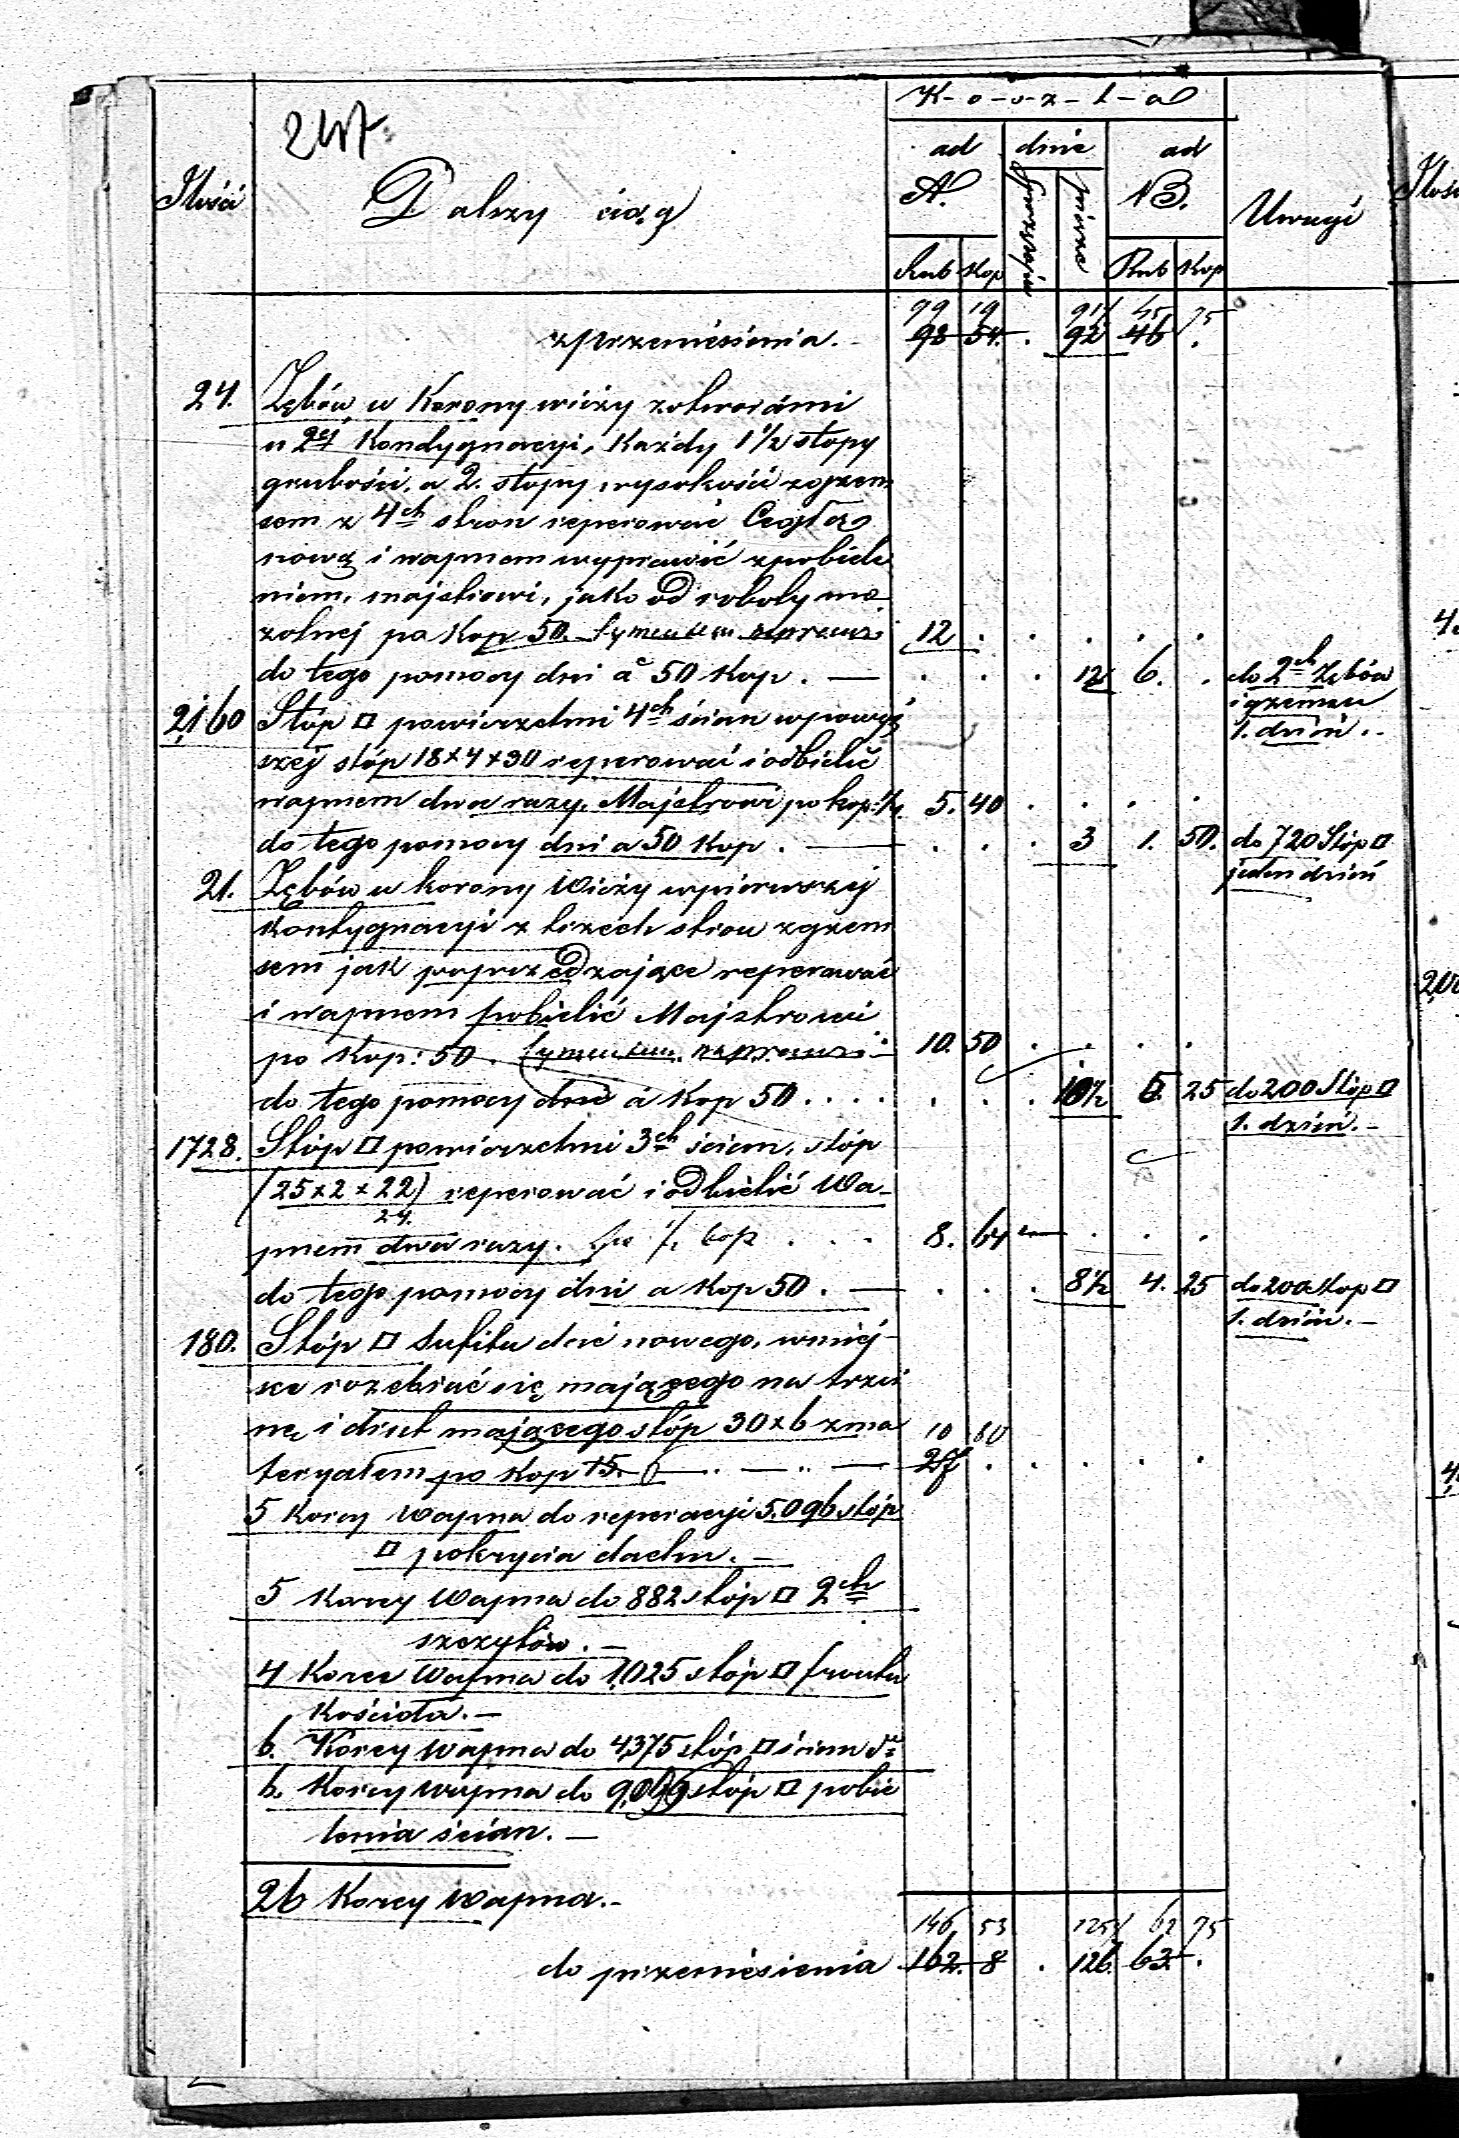 247
K-o-s-z-t-a
ad dnie ad
Ilości Dalszy ciąg A. piérsze B. Uwagi
Rub Kop Rub Kop
99 19 91½ 45 75
zprzeniésienia. 98 54. 92 46
24. Zębów w Korony wiéży zotworámi
w 2ej Kondygnacyi, Każdy 1 1/2 stopy
grubości, a 2. stopy, wysokości zgzem
sem z 4ch stron reperować Cegłą
nową i wapnem wyprawić zpobiele
niem, majstrowi, jako od roboty mo
zolnej po Kop 50. Cymentem 12
do tego pomocy dni á 50 Kop. 12 6. do 2ch Zębów
i gzemsu
1. dzień.
2,160 Stóp □ powiérzchni 4ch ścian wpowyż
széj stóp 18×4×30 reperować i odbielić
wapnem dwa razy. Majstrowi po kop: 1/4. 5. 40
do tego pomocy dni a 50 Kop. 3 1. 50. do 720 Stóp □
jeden dzień
21. Zębów w korony Wiéży wpierwszéj
Kontygnacyi z trzech stron zgzem
sem jak poprzedzające reperować
i wapnem pobielić Majstrowi
po Kop: 50. Cymentem 10. 50
do tego pomocy dni á Kop 50 10½ 5 25 do 200 Stóp □
1. dzień.
1728. Stóp □ powiérzchni 3ch ścian, stóp
(25×2×22) reperować i odbielić Wa-
24.
pnem dwa razy. po ½ kop 8. 64
do tego pomocy dni a Kop 50. 8½ 4. 25 do 200 stop □
1. dzień.
180. Stóp □ sufitu dać nowego, wmiéj-
sce rozebrać się mającego na trzci
nę i drut mającego stóp 30×6 zma 10 80
teryałem po Kop 15. 6 27
5 Korcy Wapna do reperacyi 5,096 stóp
□ pokrycia dachu.
5 Korcy Wapna do 882 stóp □ 2ch
szczytów.
4 Korce Wapna do 1,025 stóp □ frontu
Kościoła.
6. Korcy Wapna do 4,375 stóp □ ścian
6. Korcy Wapna do 9,069 stóp □ pobie
lenia ścian.
26 Korcy Wapna.
146 53 125½ 62 75
do przeniésienia 162. 8 126. 63.